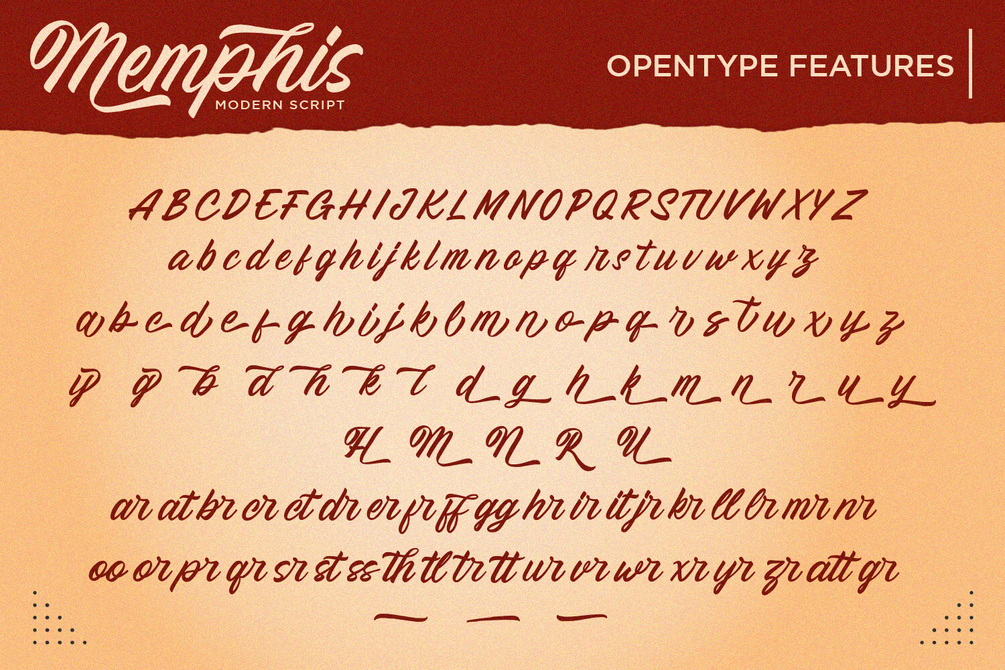 Memphis
MODERN SCRIPT
OPENTYPE FEATURES
ABCDEFGHIJKLMNOPQRSTUVWXYZ
abcdefghijklmnopqrstuvwxyz
abcdefghijklmnopqrstuwxyz
b d h k l d g h k m n r u y
H M N R U
ar at br cr ct dr er fr ff gg hr ir it jr kr ll lr mr nr
oo or pr qr sr st ss th tl tr tt ur vr wr xr yr zr att gr